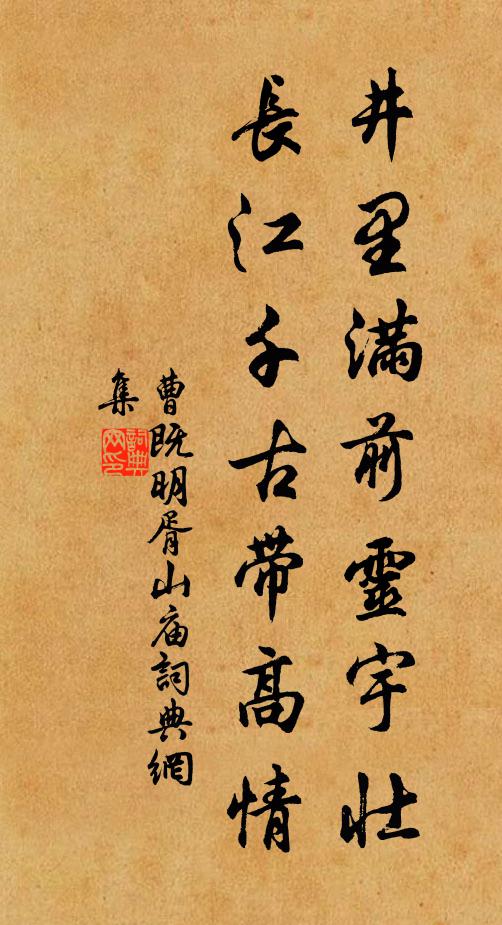 井里滿前靈宇壯
長江千古帶高情
曹既明胥山庙詞典網
集
詞典網印